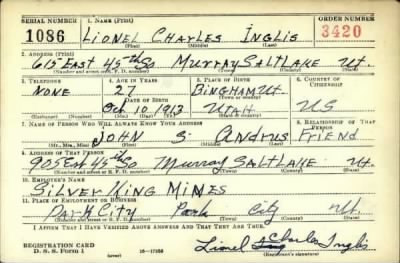 SERIAL NUMBER 1. NAME (Print) ORDER NUMBER
1086 LIONEL CHARLES INGLIS 3420
(First) (Middle) (Last)
2. ADDRESS (Print)
615 EAST 45th So MURRAY SALT LAKE UT.
(Number and street or R. F. D. number) (Town) (County) (State)
3. TELEPHONE 4. AGE IN YEARS 5. PLACE OF BIRTH 6. COUNTRY OF CITIZENSHIP
NONE 27 BINGHAM UT.
DATE OF BIRTH
Oct 10 1913 UTAH US
(Exchange) (Number) (Mo.) (Day) (Yr.) (State or country)
7. NAME OF PERSON WHO WILL ALWAYS KNOW YOUR ADDRESS 8. RELATIONSHIP OF THAT PERSON
JOHN S. ANDRUS FRIEND
(Mr., Mrs., Miss) (First) (Middle) (Last)
9. ADDRESS OF THAT PERSON
905 East 45th So Murray SALT LAKE Ut.
(Number and street or R. F. D. number) (Town) (County) (State)
10. EMPLOYER'S NAME
SILVER KING MINES
11. PLACE OF EMPLOYMENT OR BUSINESS
PARK CITY Park City Ut.
(Number and street or R. F. D. number) (Town) (County) (State)
I AFFIRM THAT I HAVE VERIFIED ABOVE ANSWERS AND THAT THEY ARE TRUE.
REGISTRATION CARD
D. S. S. Form 1 (over) Lionel Charles Inglis
(Registrant's signature)